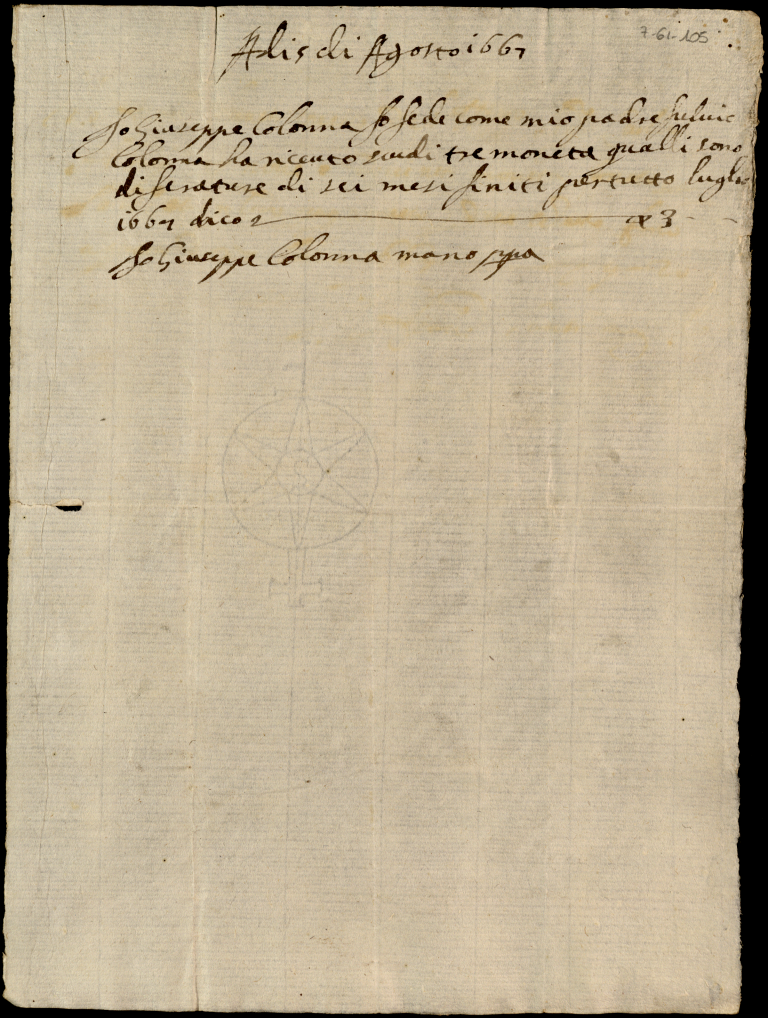 7-61-105
Adi 5 di Agosto 1667
Io Giuseppe Colonna fo fede come mio padre fuluio
Colonna ha riceuto scudi tre moneta qualli sono
di serature di sei mesi finiti per tutto luglio
1667 dico ▽ 3 - -
Io Giuseppe Colonna mano ppa